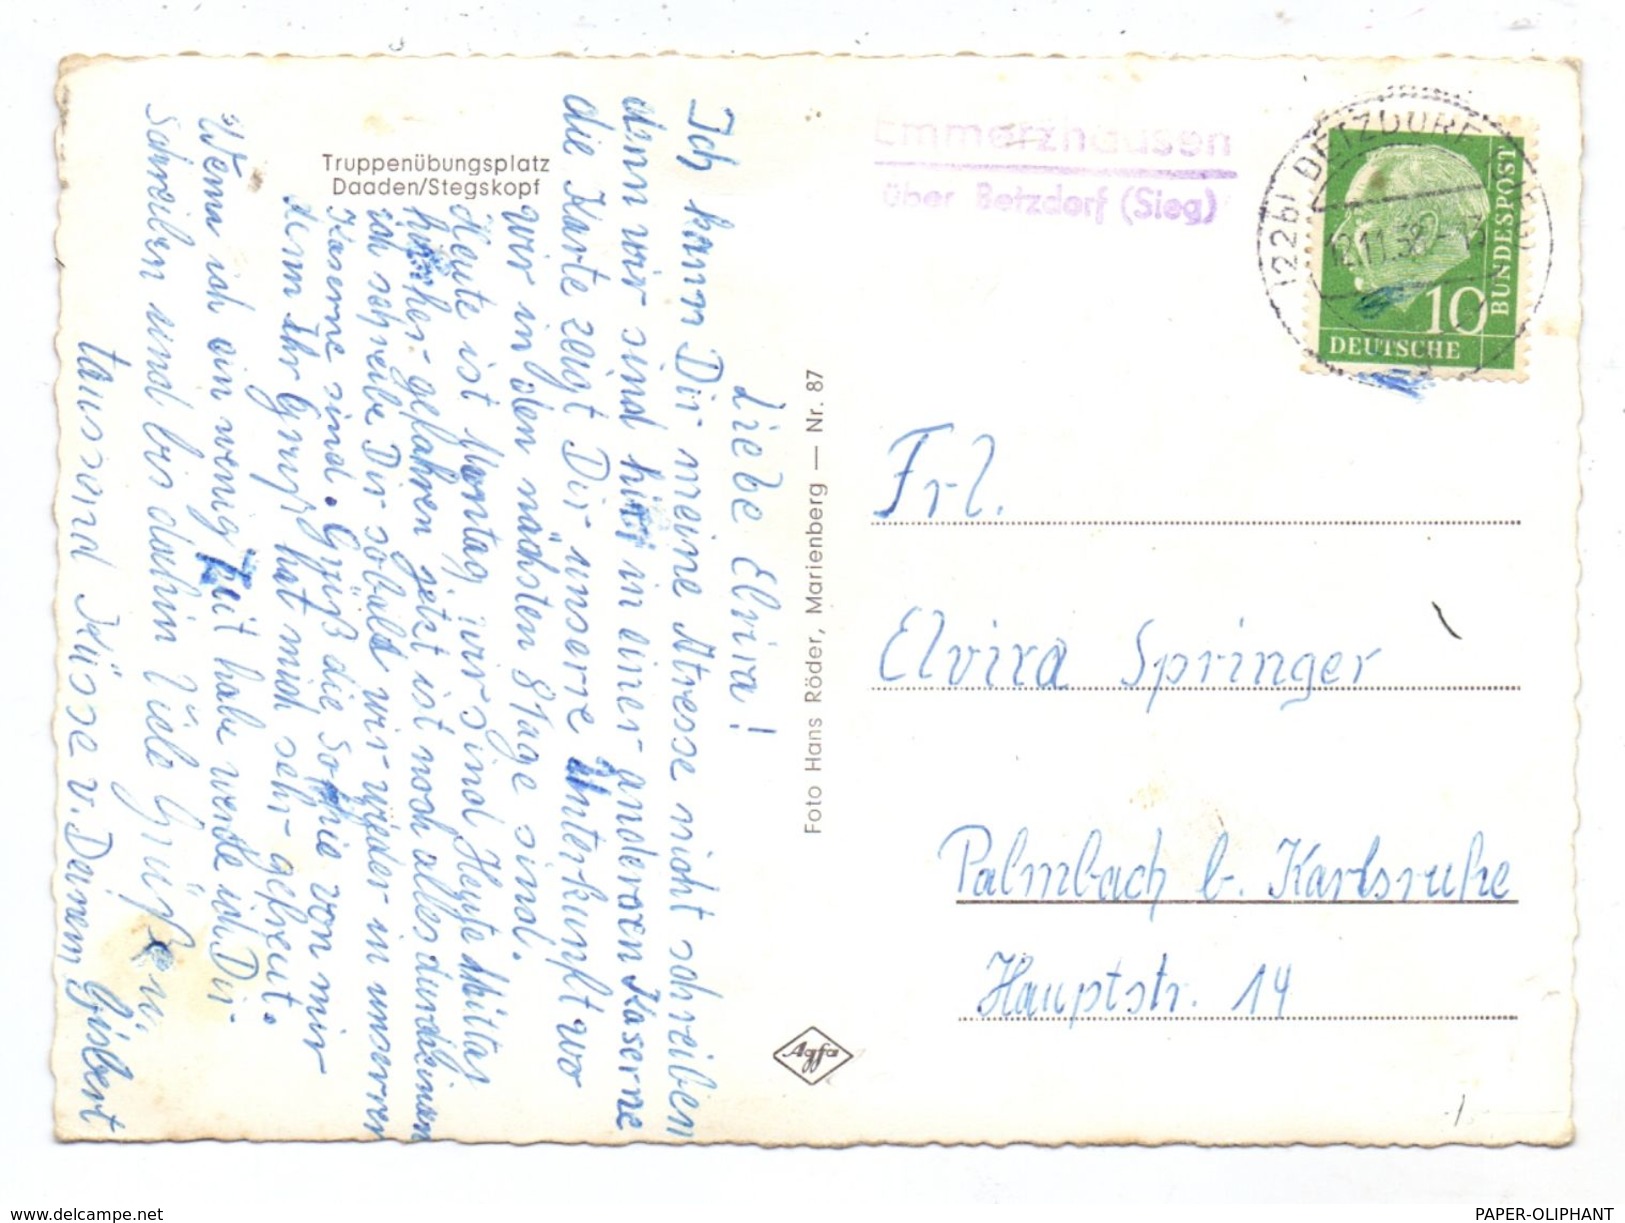 Truppenübungsplatz
Daaden/Stegskopf
Liebe Elvira!
Ich kann Dir meine Atresse nicht schreiben
denn wir sind hir in einer anderen Kaserne
die Karte zeigt Dir unserre Unterkunft wo
wir in den nächsten 8 Tage sind.
Heute ist Montag wir sind Heute Mittag
hir her-gefahren jetzt ist noch alles durcheinan
ich schreibe Dir sobald wir wieder in unserrer
Kaserne sind. Grüß die Sophie von mir
denn Ihr Gruß hat mich sehr gefreut.
Wenn ich ein wenig Zeit habe werde ich Dir
schreiben und bis dahin Viele Grüße u.
tausend Küsse v. Deinem Gisbert
Foto Hans Röder, Marienberg — Nr. 87
Agfa
Emmerzhausen
über Betzdorf (Sieg)
(22b) BETZDORF (SIEG)
12.11.58-13
10
DEUTSCHE
BUNDESPOST
Frl.
Elvira Springer
Palmbach b. Karlsruhe
Hauptstr. 14
www.delcampe.net
PAPER-OLIPHANT